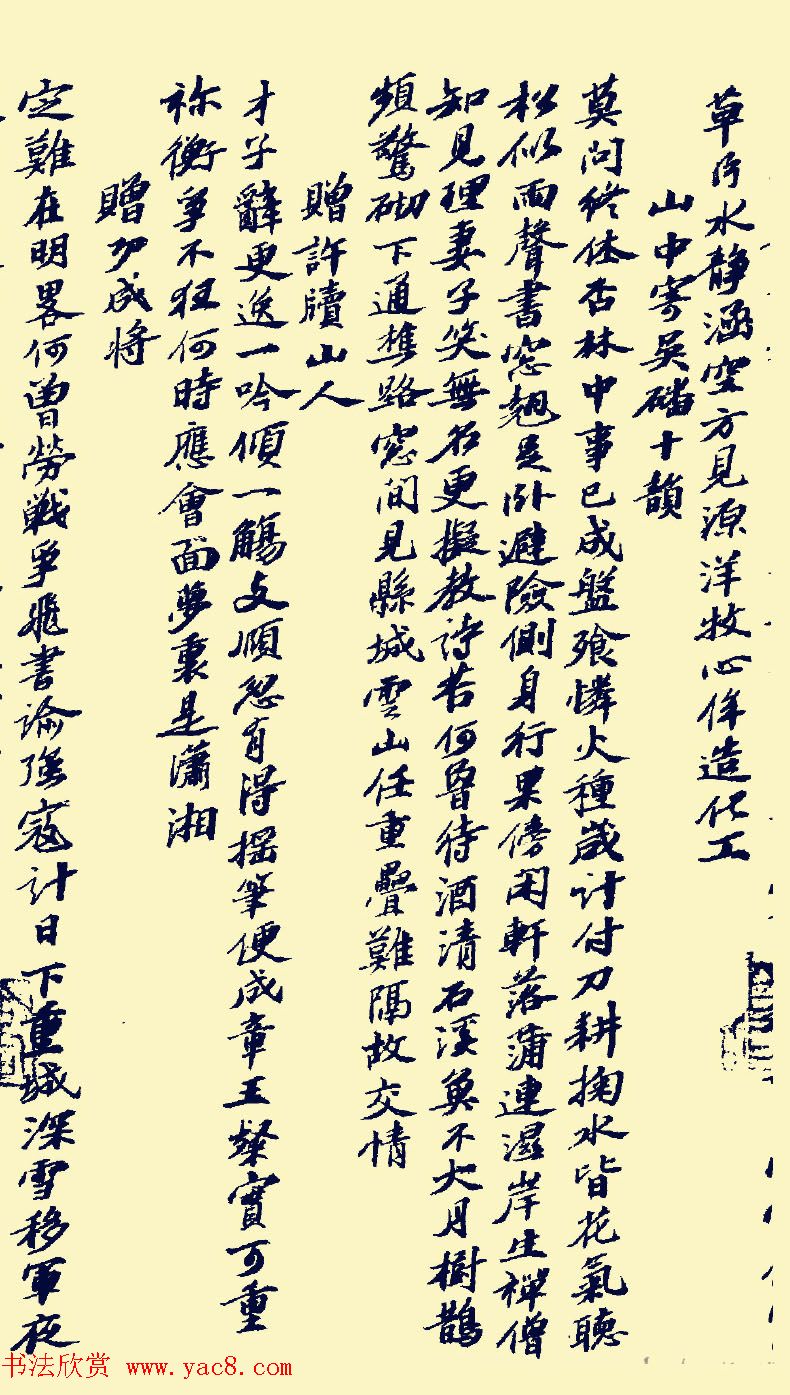 草際水靜涵空方見源洋牧心侔造化工
山中寄吳磻十韻
莫問終休否林中事已成盤飱憐火種歲計付刀耕掬水皆花氣聴
松似雨聲書窓翹足卧避險側身行果傍閑軒落蒲連濕岸生禪僧
知見理妻子笑無名更擬教詩苦何曾待酒清石溪魚不大月樹鵲
頻驚砌下通樵路窓間見縣城雲山任重疊難隔故交情
贈許牘山人
才子辭更逸一吟傾一觴支頤忽有得揺筆便成章王粲實可重
祢衡爭不狂何時應會面夢裏是瀟湘
贈功成將
定難在明畧何曾勞戦爭飛書諭強寇計日下重城深雪移軍夜
书法欣赏 www.yac8.com